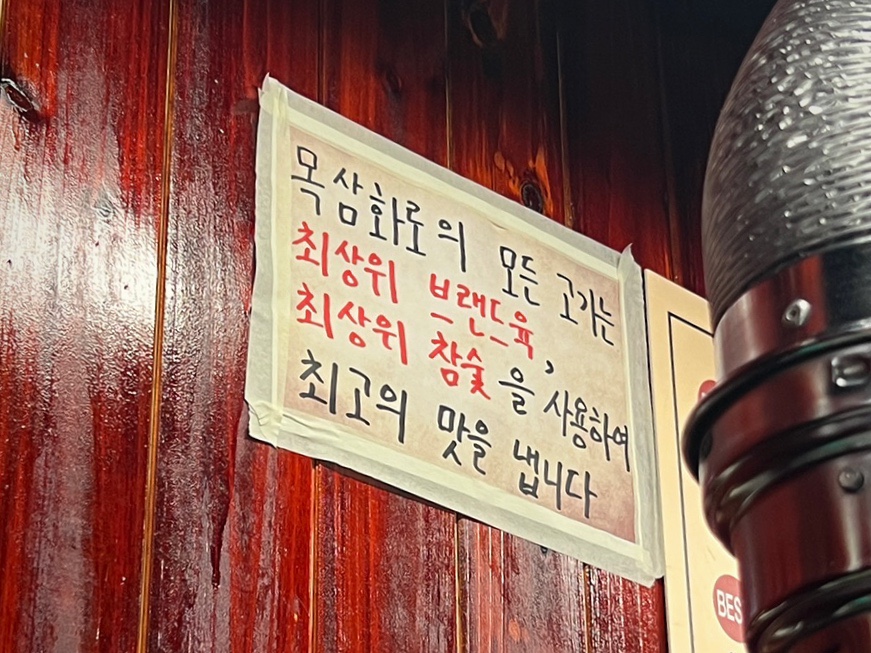 목삼화로의 모든 고기는
최상위 브랜드육,
최상위 참숯을 사용하여
최고의 맛을 냅니다
BES